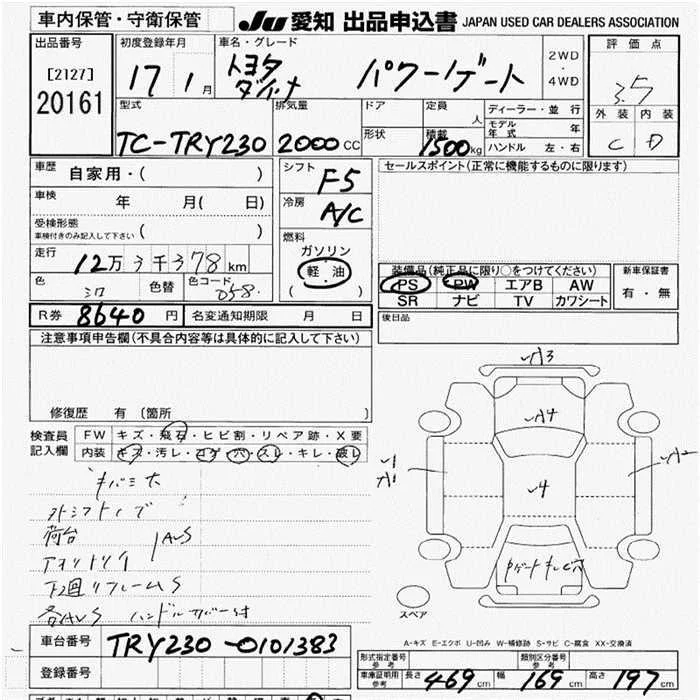 車内保管・守衛保管
JU 愛知 出品申込書 JAPAN USED CAR DEALERS ASSOCIATION
出品番号
[2127]
20161
初度登録年月
17 1月
車名・グレード
トヨタ
ダイナ
パワーゲート
2WD
・
4WD
評価点
3.5
外装 内装
C D
型式
TC-TRY230
排気量
2000CC
ドア
形状
定員
人
積載
1500kg
ディーラー・並行
モデル年式 年
ハンドル 左・右
車歴
自家用・( )
車検
年 月( 日)
受検形態
車検付きのみ記入して下さい ( )
走行
12万3千378km
色
シロ
色替
色コード
058
シフト
F5
冷房
A/C
燃料
ガソリン
軽・油
( )
セールスポイント(正常に機能するものに限ります)
装備品(純正品に限り○をつけてください)
PS PW エアB AW
SR ナビ TV カワシート
新車保証書
有・無
後日品
R券 8640円 名変通知期限 月 日
注意事項申告欄(不具合内容等は具体的に記入して下さい)
修復歴 有〔箇所 〕
検査員
記入欄
FW キズ・飛石・ヒビ割・リペア跡・X要
内装 キズ・汚レ・コゲ・穴・スレ・キレ・破レ
荷台
アオリ
下回リフレームS
ハンドルカバー付
A4
スペア
A-キズ E-エクボ U-凹み W-補修跡 S-サビ C-腐食 XX-交換済
車台番号 TRY230-0101383
登録番号
形式指定番号
参考
類別区分番号
参考
車庫証明用
参考
長さ 469cm 幅 169cm 高さ 197cm